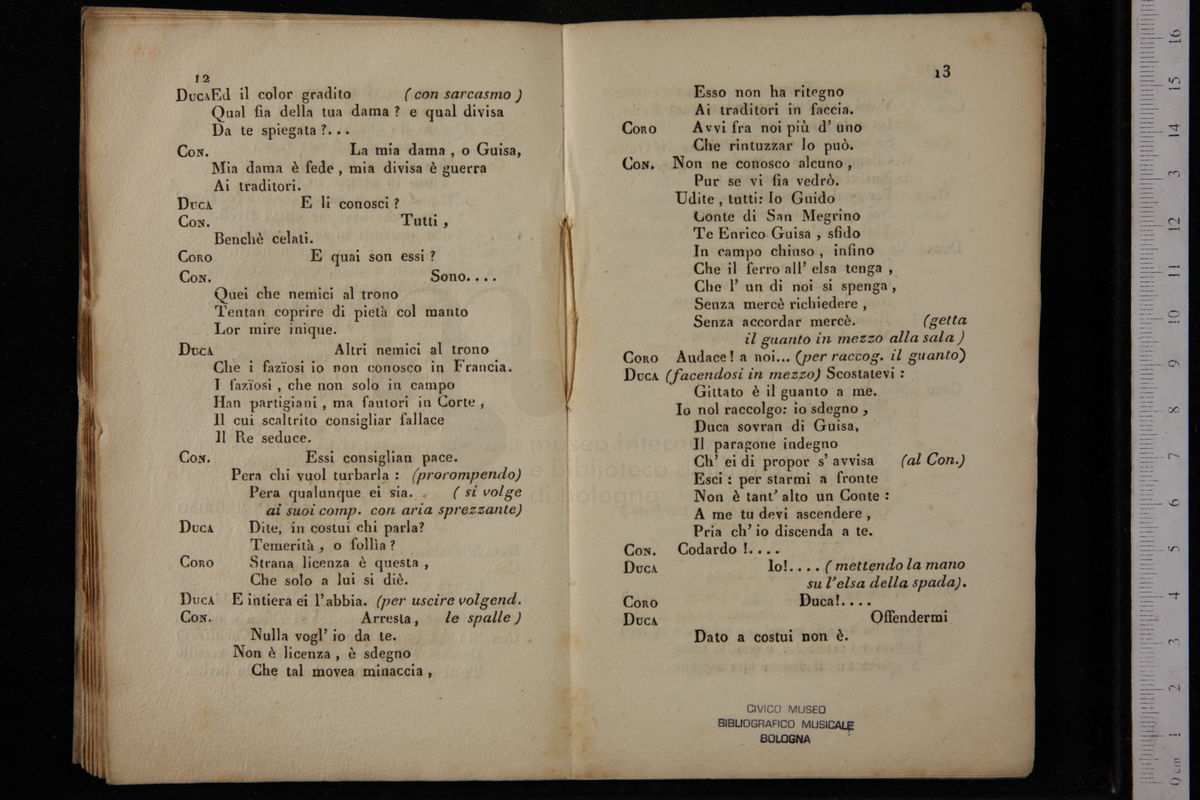 12
DUCA Ed il color gradito ( con sarcasmo )
Qual fia della tua dama ? e qual divisa
Da te spiegata ?...
CON. La mia dama , o Guisa,
Mia dama è fede , mia divisa è guerra
Ai traditori.
DUCA E li conosci ?
CON. Tutti ,
Benchè celati.
CORO E quai son essi ?
CON. Sono....
Quei che nemici al trono
Tentan coprire di pietà col manto
Lor mire inique.
DUCA Altri nemici al trono
Che i fazïosi io non conosco in Francia.
I fazïosi , che non solo in campo
Han partigiani , ma fautori in Corte ,
Il cui scaltrito consigliar fallace
Il Re seduce.
CON. Essi consiglian pace.
Pera chi vuol turbarla : (prorompendo)
Pera qualunque ei sia. ( si volge
ai suoi comp. con aria sprezzante)
DUCA Dite, in costui chi parla?
Temerità , o follìa ?
CORO Strana licenza è questa ,
Che solo a lui si diè.
DUCA E intiera ei l'abbia. (per uscire volgend.
CON. Arresta, le spalle )
Nulla vogl' io da te.
Non è licenza , è sdegno
Che tal movea minaccia ,
13
Esso non ha ritegno
Ai traditori in faccia.
CORO Avvi fra noi più d' uno
Che rintuzzar lo può.
CON. Non ne conosco alcuno ,
Pur se vi fia vedrò.
Udite , tutti: Io Guido
Conte di San Megrino
Te Enrico Guisa , sfido
In campo chiuso , infino
Che il ferro all' elsa tenga ,
Che l' un di noi si spenga ,
Senza mercè richiedere ,
Senza accordar mercè. (getta
il guanto in mezzo alla sala )
CORO Audace! a noi... (per raccog. il guanto)
DUCA (facendosi in mezzo) Scostatevi :
Gittato è il guanto a me.
Io nol raccolgo: io sdegno ,
Duca sovran di Guisa,
Il paragone indegno
Ch' ei di propor s' avvisa (al Con.)
Esci : per starmi a fronte
Non è tant' alto un Conte :
A me tu devi ascendere ,
Pria ch' io discenda a te.
CON. Codardo !....
DUCA Io!.... ( mettendo la mano
su l'elsa della spada).
CORO Duca!....
DUCA Offendermi
Dato a costui non è.
CIVICO MUSEO
BIBLIOGRAFICO MUSICALE
BOLOGNA
museo inter
e biblioteca d
di bologna
0 cm 1 2 3 4 5 6 7 8 9 10 11 12 13 14 15 16